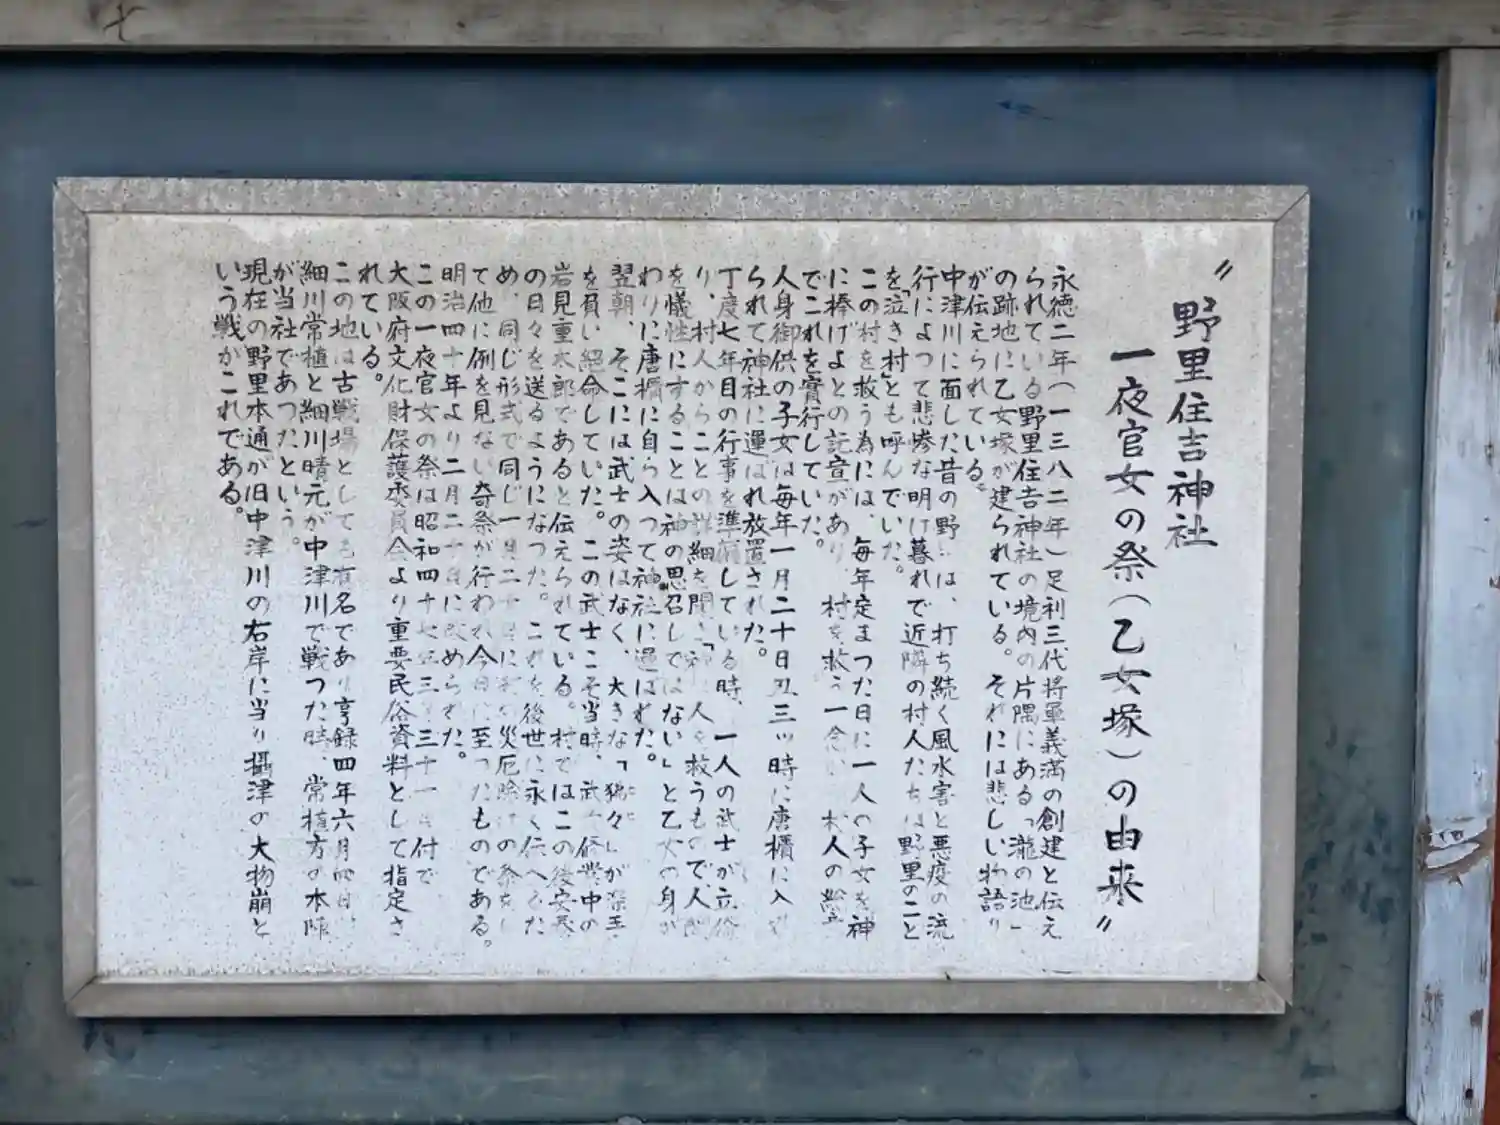 七
〝野里住吉神社
一夜官女の祭(乙女塚)の由来〟
永徳二年(一三八二年)足利三代将軍義満の創建と伝え
られている野里住吉神社の境内の片隅にある「瀧の池」
の跡地に乙女塚が建られている。それには悲しい物語り
が伝えられている。
中津川に面した昔の野 は、打ち続く風水害と悪疫の流
行によつて悲惨な明け暮れで近隣の村人たちは野里のこと
を「泣き村」とも呼んでいた。
この村を救う為には、毎年定まつた日に一人の子女を神
に捧げよとの託宣があり、村を救う一念 村人の総意
でこれを實行していた。
人身御供の子女は毎年一月二十日丑三ッ時に唐櫃に入
られて神社に運ばれ放置された。
丁度七年目の行事を準備している時、一人の武士が立
り、村人からことの詳細を聞き「神 人を救うもので、人
を犠性にすることは神の思召しではない」と乙女の身が
わりに唐櫃に自ら入つて神社に運ばれた。
翌朝、そこには武士の姿はなく、大きな「狒々」が深
を負い絶命していた。この武士こそ当時、武 修業中の
岩見重太郎であると伝えられている。村ではこの後安
の日々を送るようになつた。これを後世に永く伝へ た
め、同じ形式で同じ一月二十 に 災厄除けの祭 し
て他に例を見ない奇祭が行われ今日に至つたものである。
明治四十年より二月二十日に改められた。
この一夜官女の祭は昭和四十七年三月三十一日付で
大阪府文化財保護委員会より重要民俗資料として指定さ
れている。
この地は古戦場としても有名であり享録四年六月四日
細川常植と細川晴元が中津川で戦つた時、常植方の本陣
が当社であつたという。
現在の野里本通が旧中津川の右岸に当り攝津の大物崩と
いう戦がこれである。